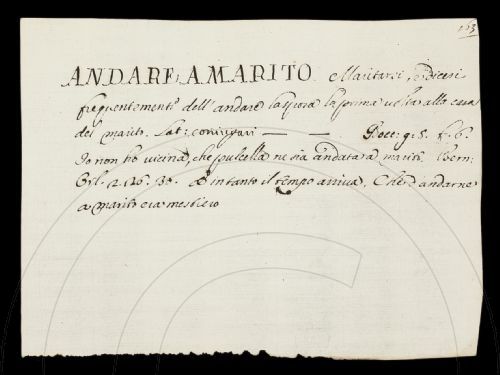 163
ANDARE A MARITO. Maritarsi, e dicesi
frequentemente dell'andare la sposa la prima volta alla casa
del marito. Lat: coniugari — — Bocc: g. 5. f. 6.
Io non ho vicina, che pulcella ne sia andata a marito. Bern:
Orl. 2. 26. 30. intanto il tempo arriva, Che d'andarne
a marito era mestiero